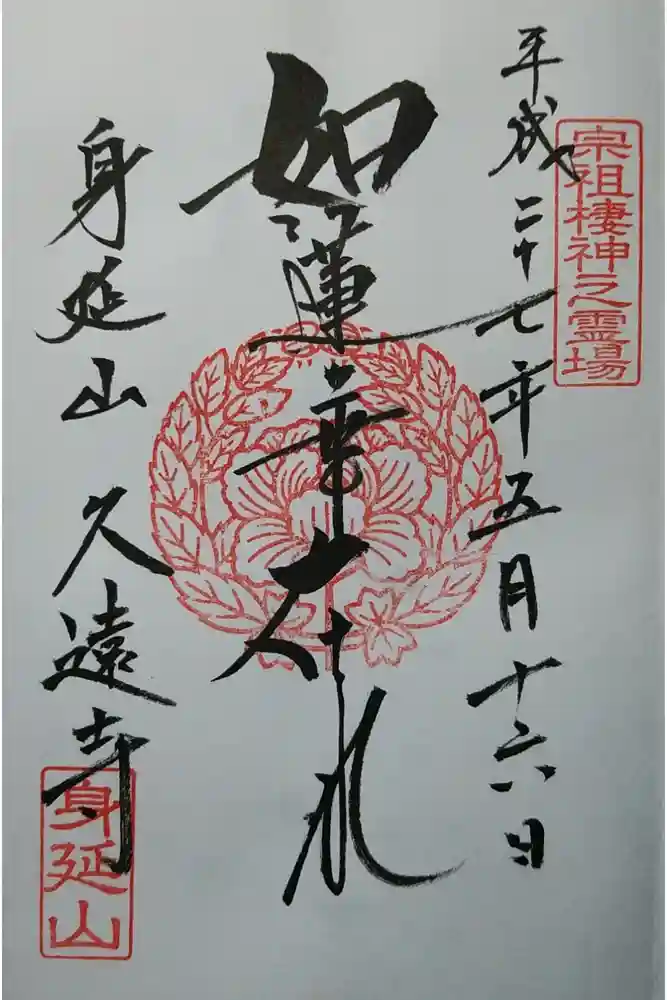 宗祖棲神之霊場
平成二十七年五月十六日
如蓮華在水
身延山 久遠寺
身延山